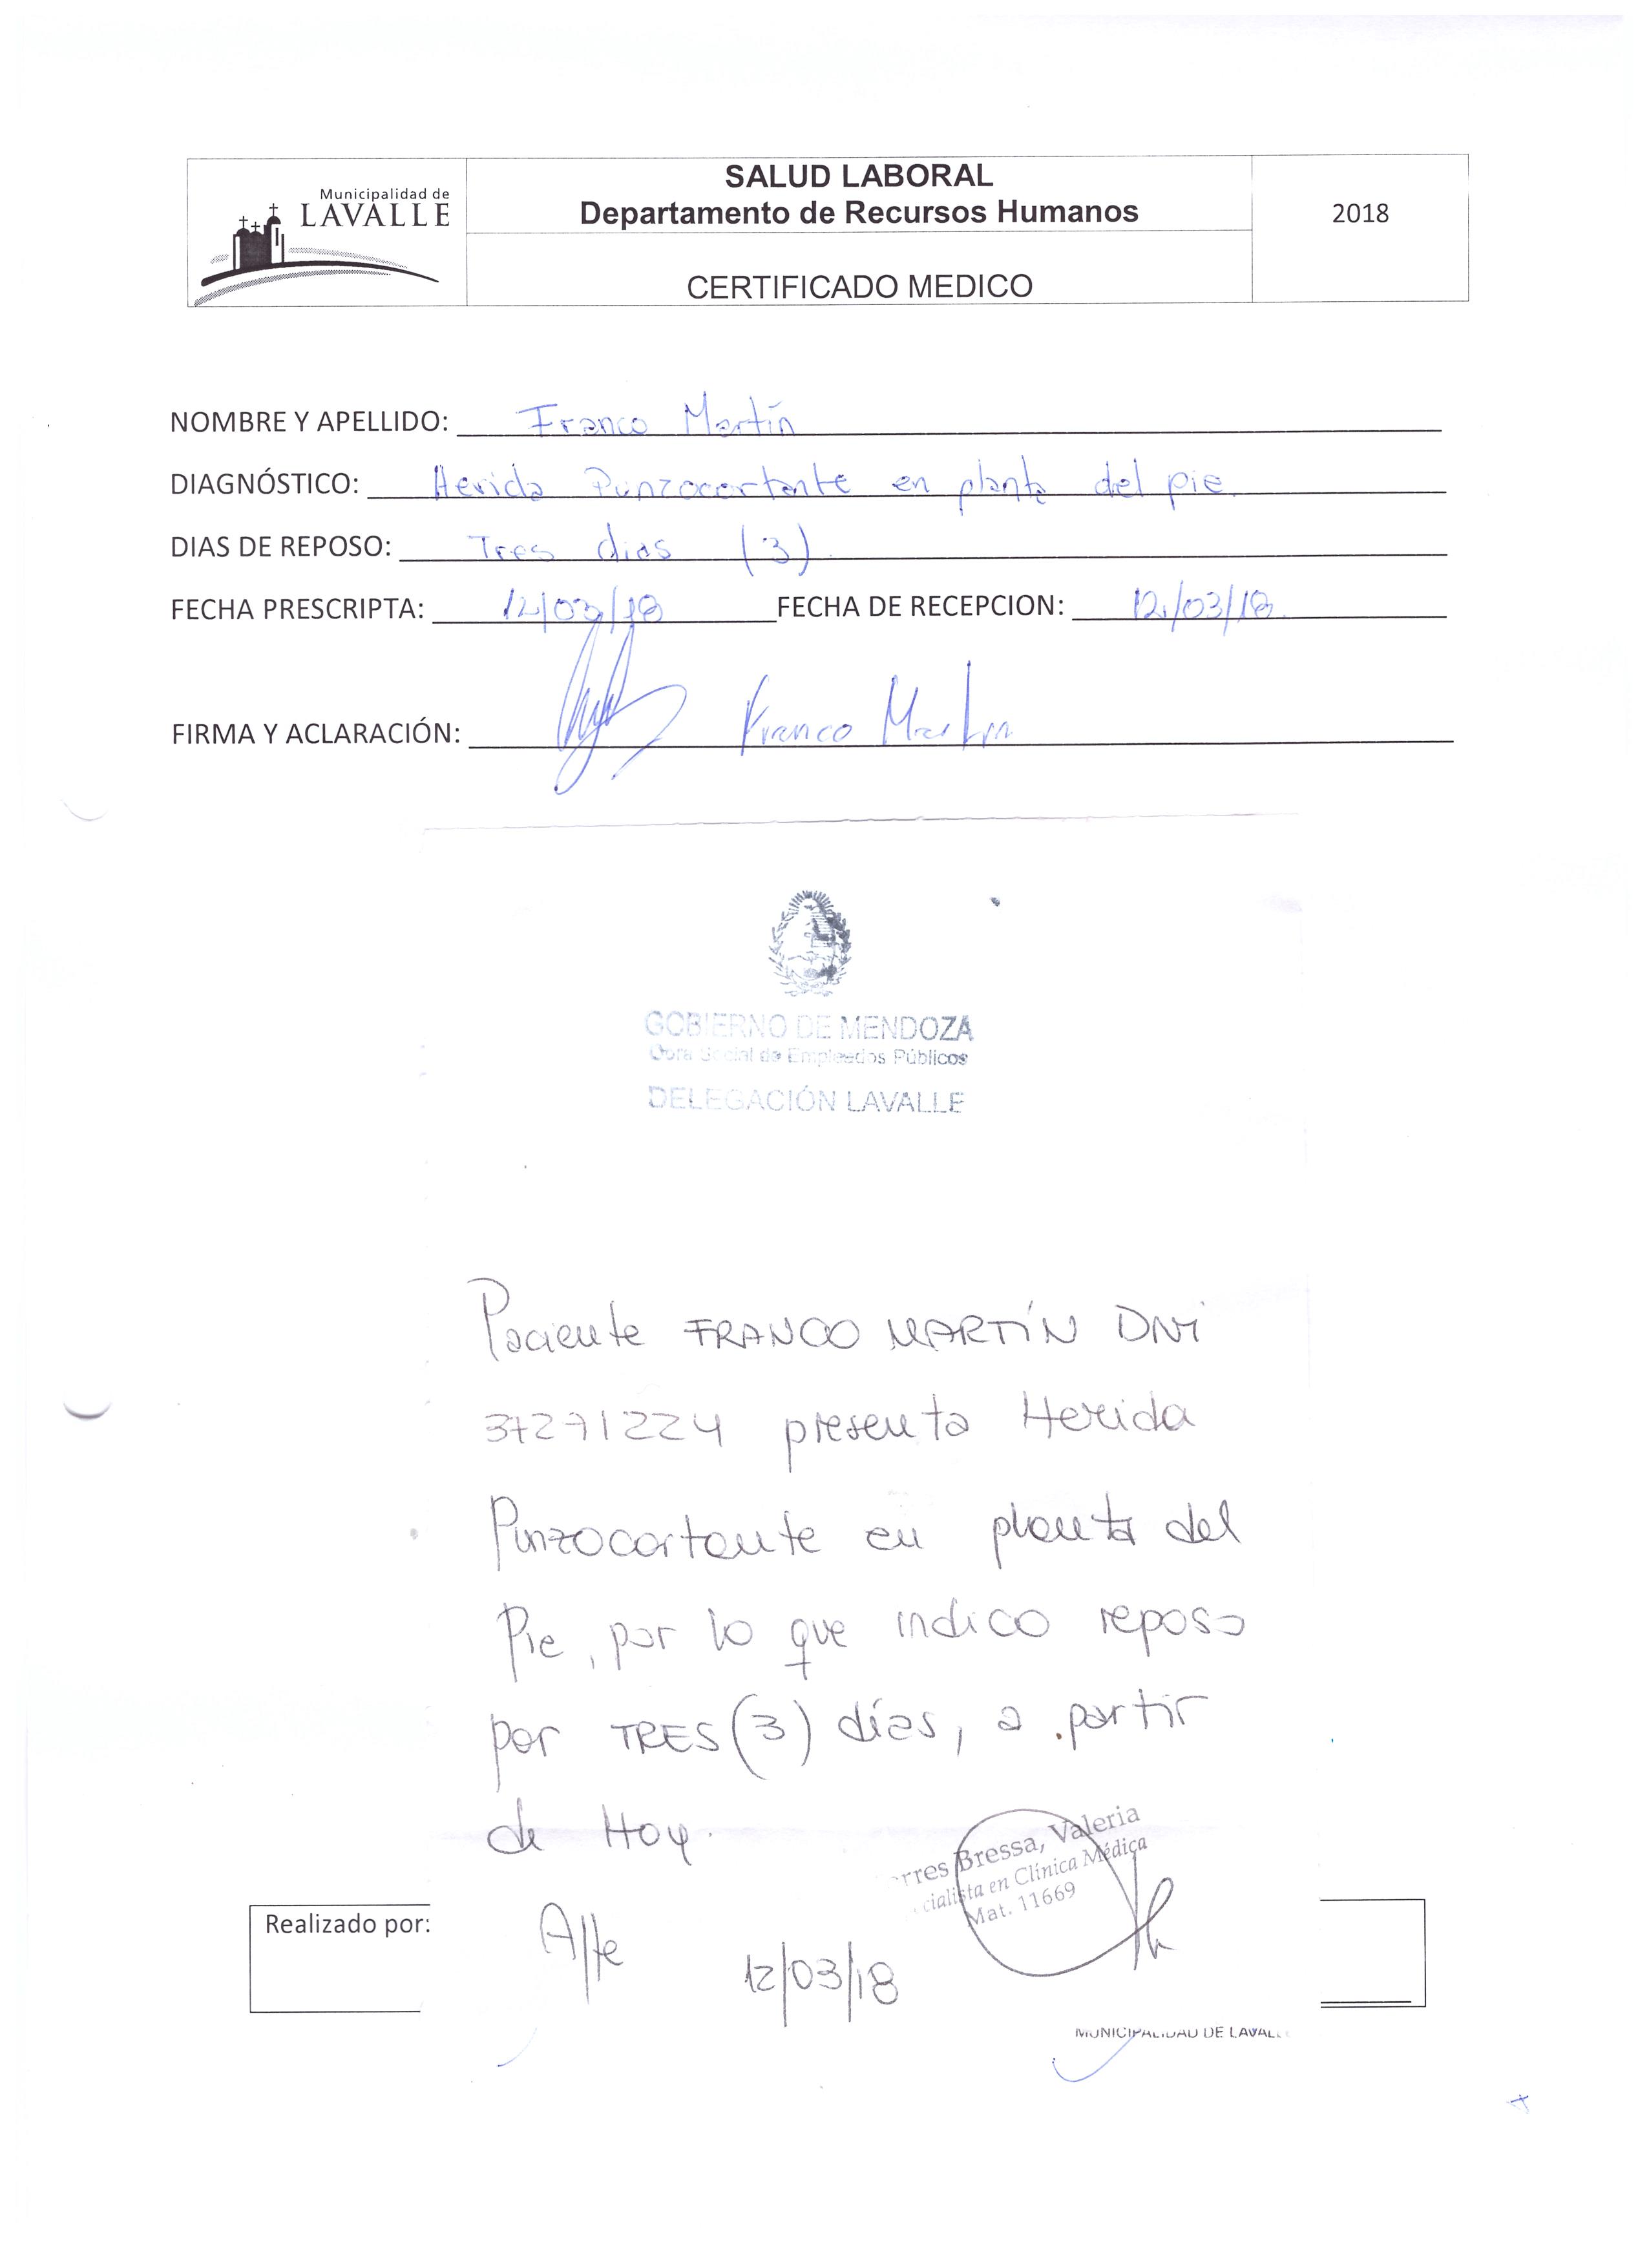 Municipalidad de
LAVALLE
SALUD LABORAL
Departamento de Recursos Humanos
CERTIFICADO MEDICO
2018
NOMBRE Y APELLIDO: Franco Martín
DIAGNÓSTICO: Herida Punzocortante en planta del pie.
DIAS DE REPOSO: Tres dias (3)
FECHA PRESCRIPTA: 12/03/18 FECHA DE RECEPCION: 12/03/18.
FIRMA Y ACLARACIÓN: Franco Martin
GOBIERNO DE MENDOZA
Obra Social de Empleados Públicos
DELEGACIÓN LAVALLE
Paciente FRANCO MARTÍN DNI
37271224 presenta Herida
Punzocortante en planta del
Pie, por lo que indico reposo
por TRES (3) días, a partir
de Hoy.
rres Bressa, Valeria
cialista en Clínica Médica
Mat. 11669
Realizado por:
12/03/18
MUNICIPALIDAD DE LAVALLE